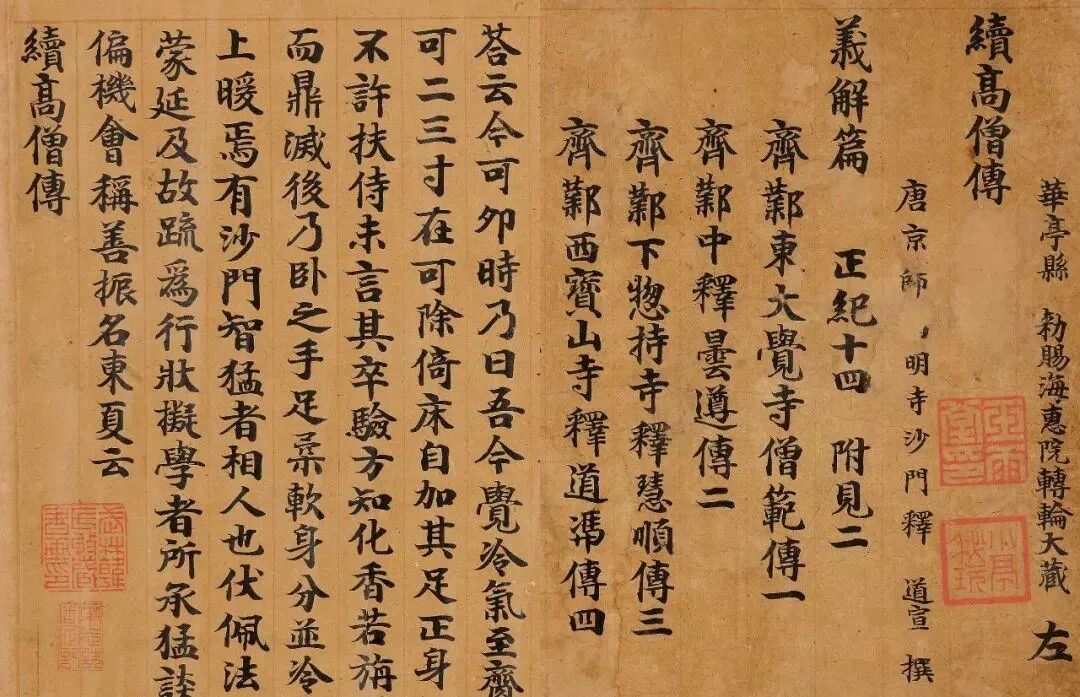 華亭縣 勑賜海惠院轉輪大藏 左
續高僧傳
唐京師 明寺沙門釋 道宣 撰
義解篇 正紀十四 附見二
齊鄴東大覺寺僧範傳一
齊鄴中釋曇遵傳二
齊鄴下惣持寺釋慧順傳三
齊鄴西寶山寺釋道馮傳四
荅云今可夘時乃曰吾今覺冷氣至齊
可二三寸在可除倚床自加其足正身
不許扶侍未言其卒驗方知化香若旃
而鼎滅後乃卧之手足柔軟身分並冷
上暖焉有沙門智猛者相人也伏佩法
蒙延及故疏爲行狀擬學者所承猛談
偏機會稱善振名東夏云
續高僧傳